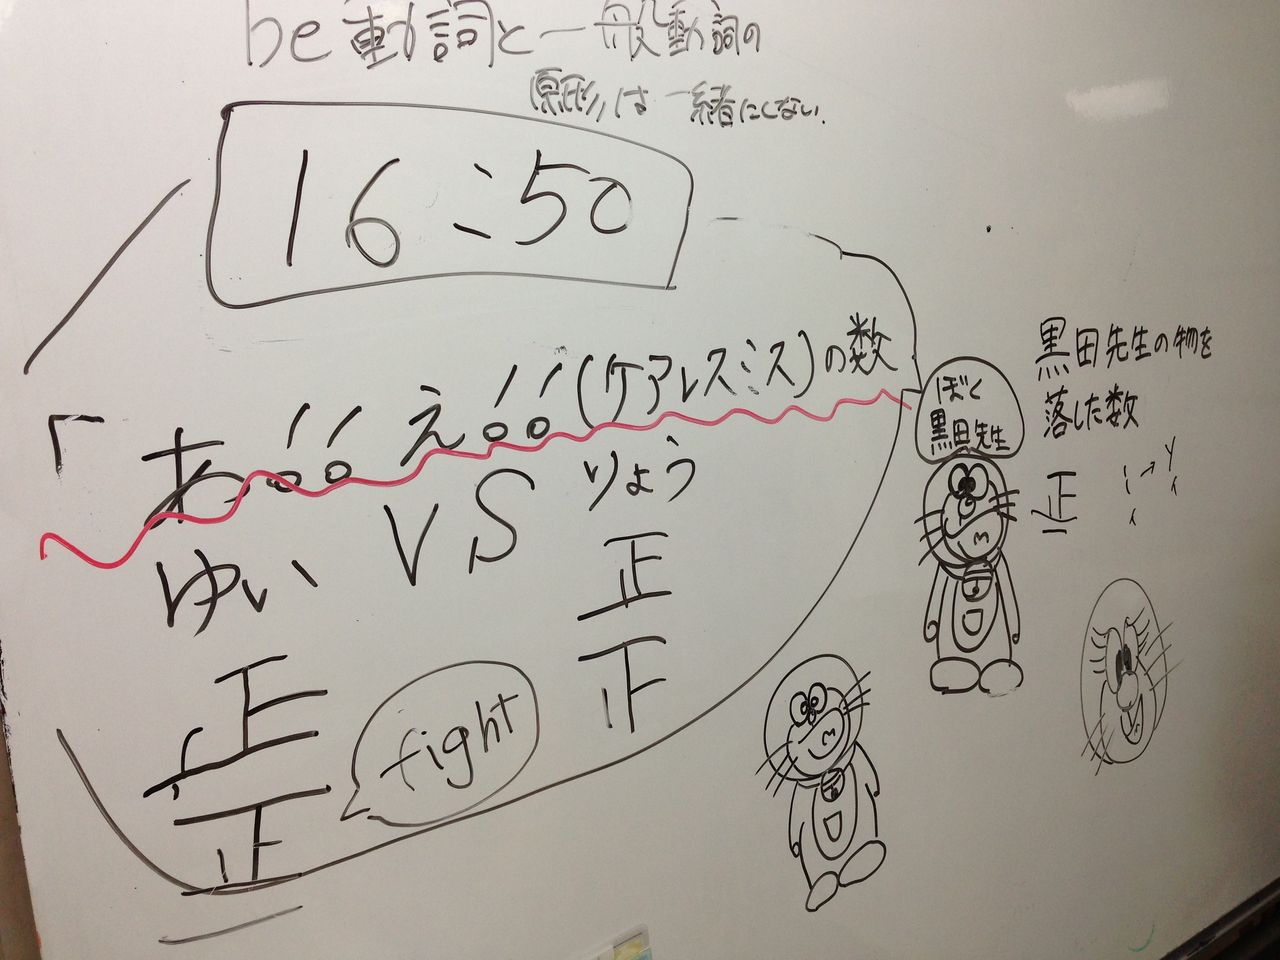 be動詞と一般動詞の
原形は一緒にしない.
16:50
「あ!! え!!(ケアレスミス)の数
ゆい VS りょう
正
正
正
正
fight
ぼく
黒田先生
黒田先生の物を
落した数
正